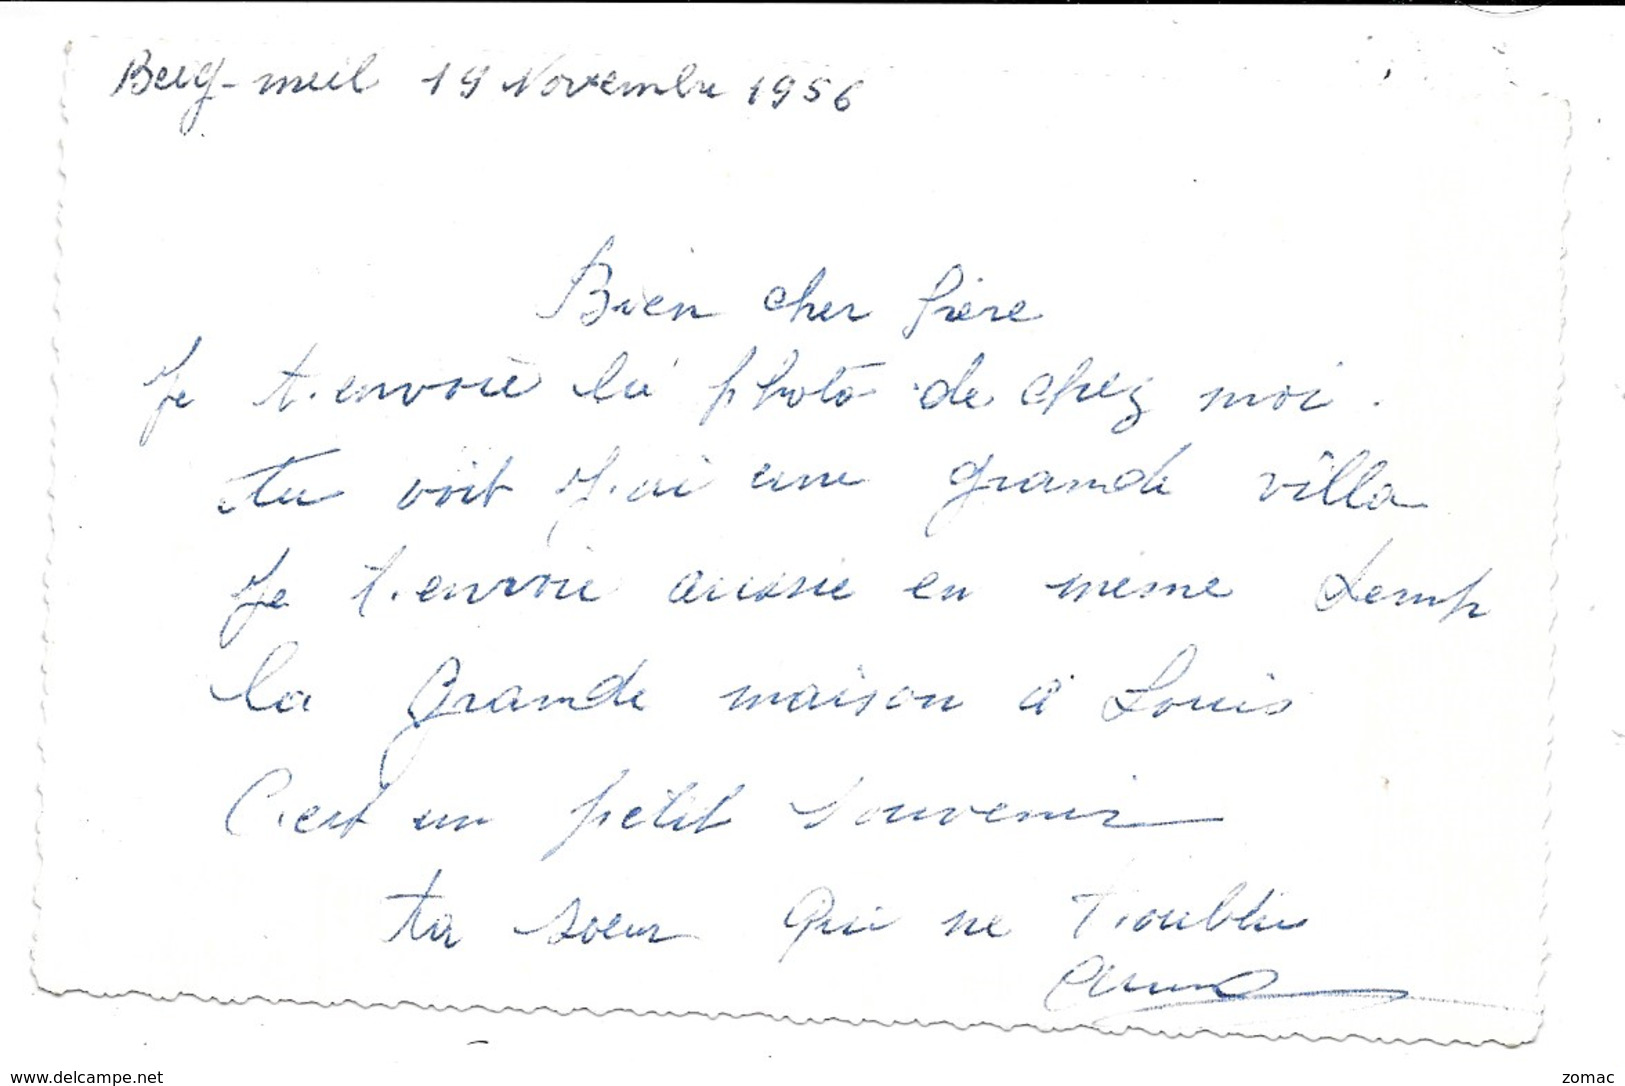 Beig-meil 19 Novembre 1956
Bien cher frère
Je t.envoie la photo de chez moi.
tu voit j.ai une grande villa
Je t.envoie aussie en même temp
la grande maison à Louis
C.est un petit souvenir
ta soeur qui ne t.oublie
www.delcampe.net
zomac